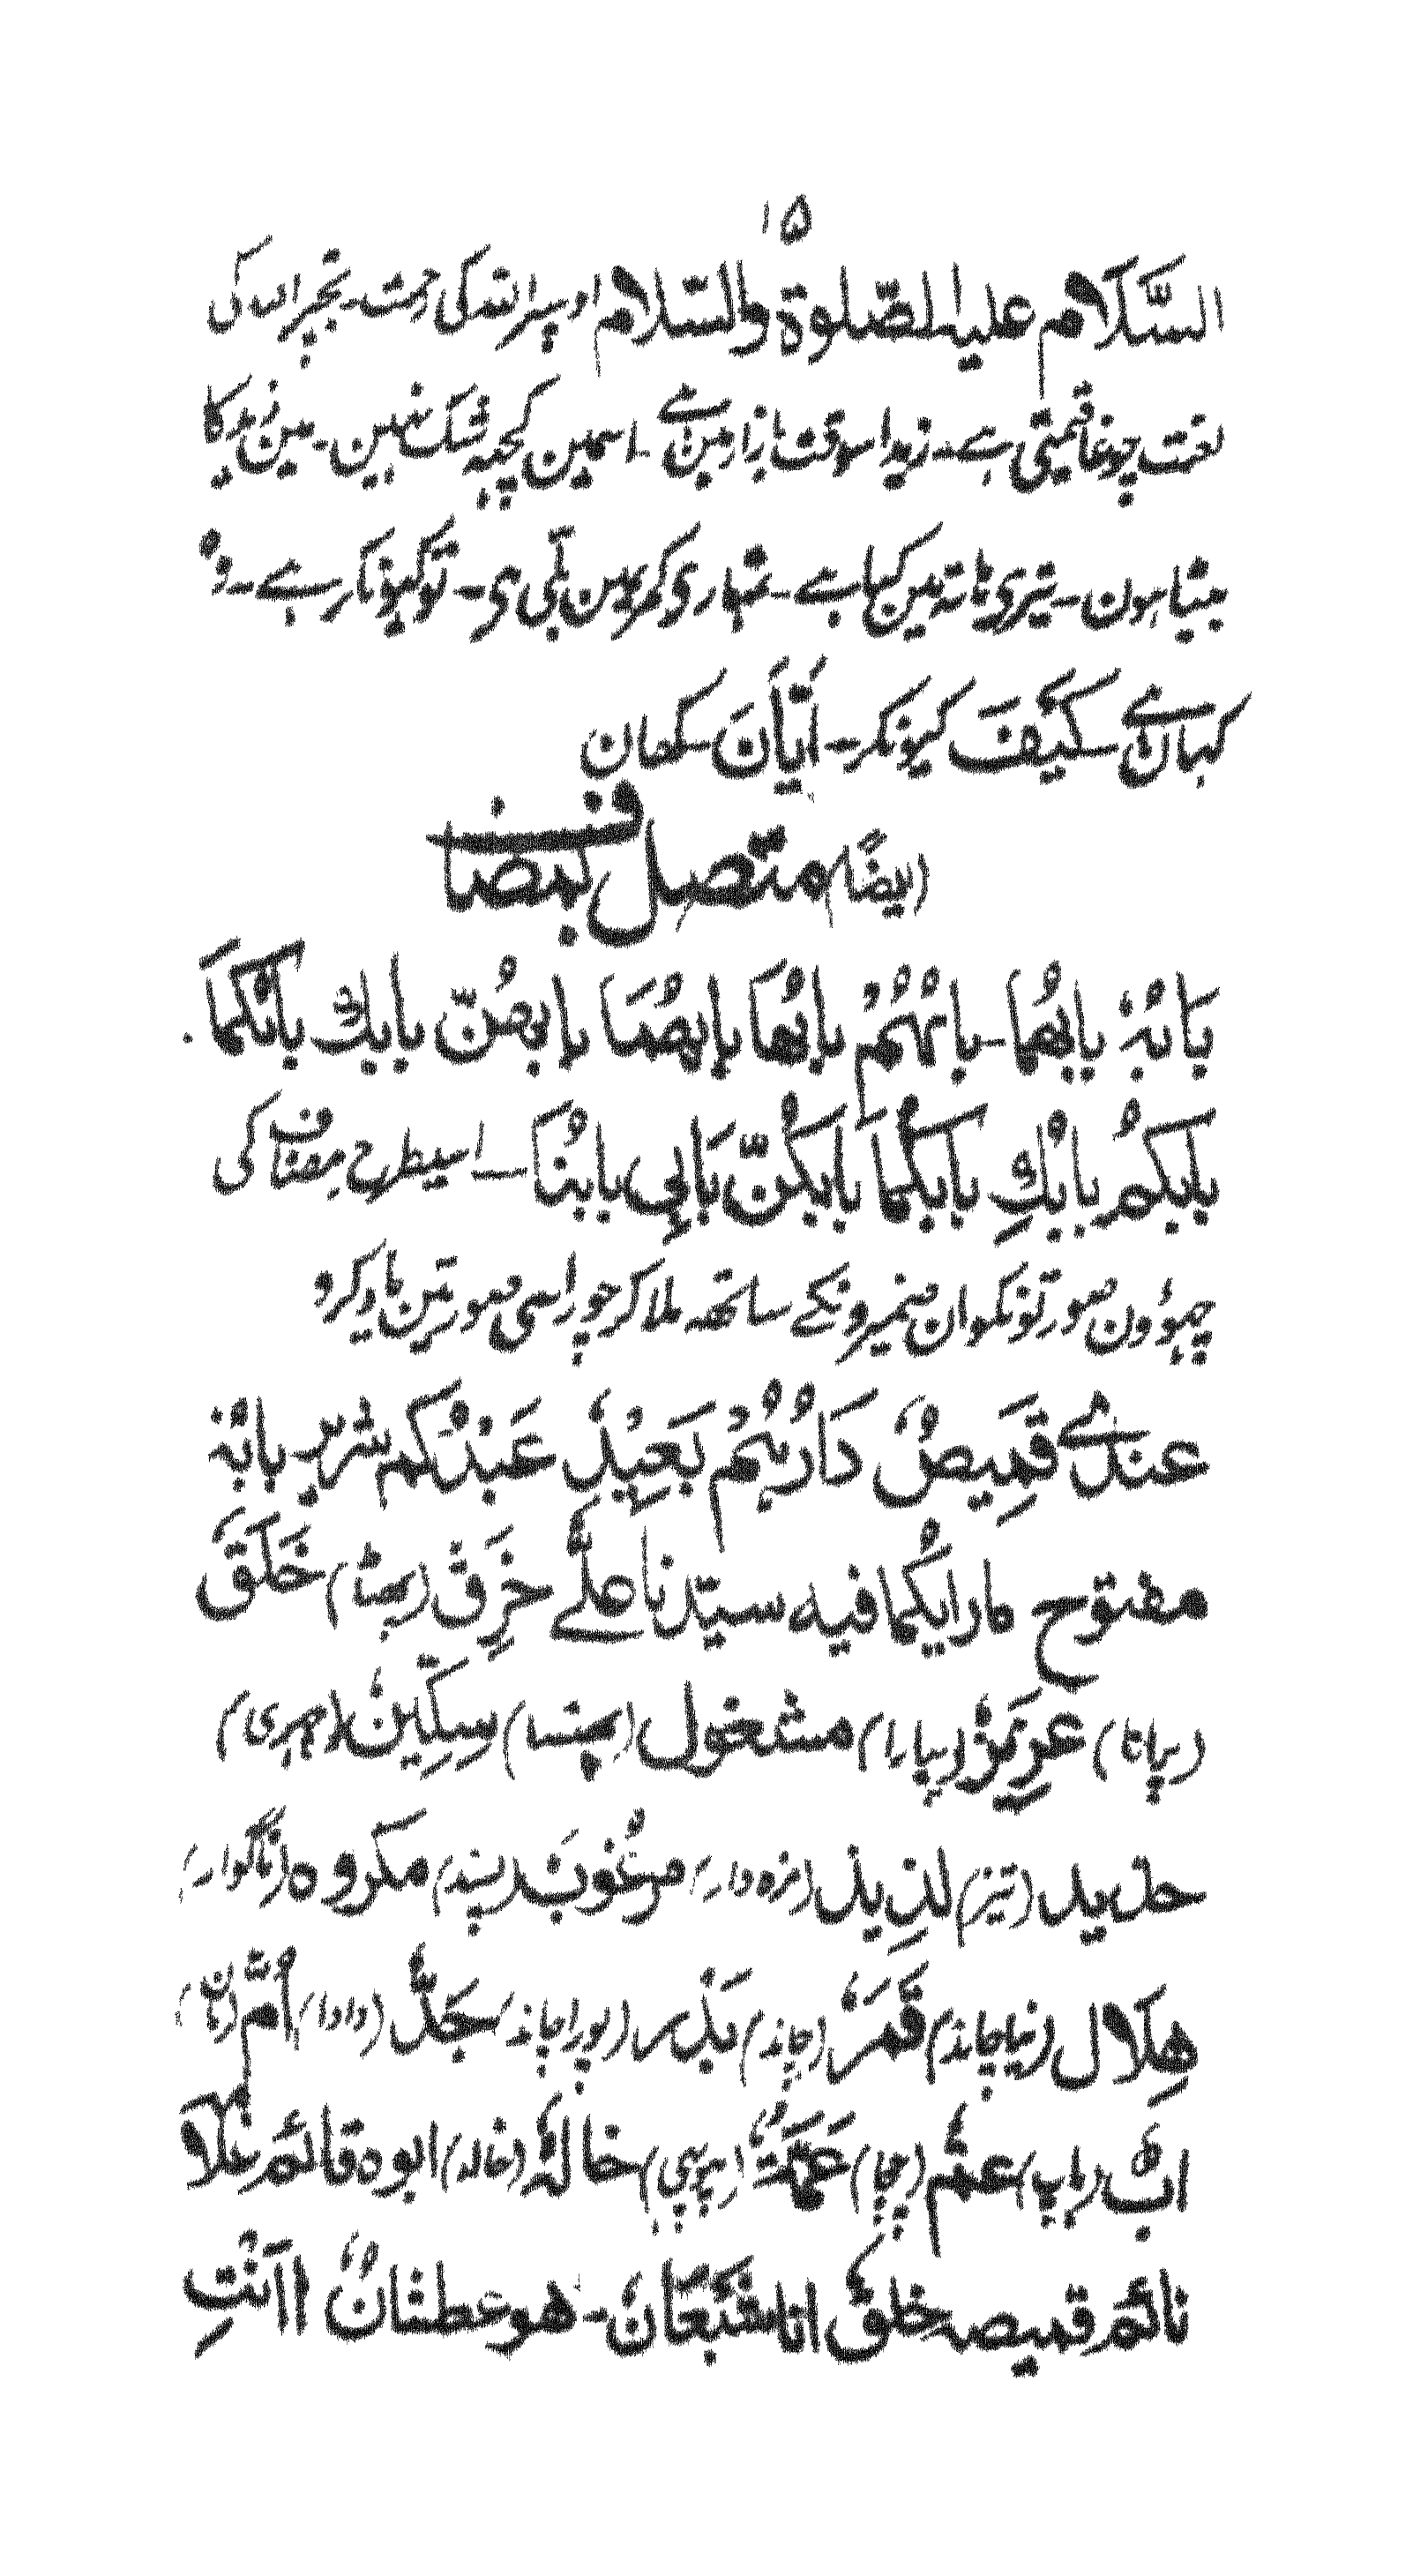 ۱۵
السَّلَام علیہ الصّلوة والسّلام اوسپر اللہ کی رحمت۔ تجہپر اس کی
لعنت چوغا قیمتی ہے۔ زید اسوقت بازار مین ہے۔ اسمین کچہہ شک نہین۔ مین زید کا
بیٹا ہون۔ تیری ہاتہ مین کیا ہے۔ تمہاری کمر مین ہی۔ تو کیونکر ہے۔ وہ
کہان ہے کَیْفَ کیونکر۔ اَیَّانَ کہان
(ایضًا) متصل بمضاف
بَابُہٗ بابُهُمَا۔ بابُهُمْ بابُهَا بابُهُمَا بابُهُنّ بابُكَ بابُكُمَا
بابُكُمْ بابُكِ بابُكُمَا بابُكُنّ بَابِی بابُنَا۔ اسیطرح مضاف کی
چہؤون صورتونکو ان ضمیرونکے ساتھہ ملا کر چوراسی صورتین یاد کرو
عندی قَمِیصٌ دَارُہُمْ بَعِیْدٌ عَبْدُكُم شریر بابُہٗ
مفتوح مارایكما فیه سیّدنا علی خَرِقٌ (پھٹا) خَلَقٌ
(پرانا) عَزِیزٌ (پیارا) مشغول (پھنسا) سِكِّینٌ (چہری)
حدید (تیز) لذِیذ (مزہ دار) مرغُوبٌ (پسند) مکروہ (ناگوار)
هِلَال (نیا چاند) قَمَرٌ (چاند) بَدْر (پورا چاند) جَدٌّ (دادا) اُمٌّ (مان)
ابٌ (باپ) عمٌّ (چچا) عَمَّةٌ (پہپی) خالةٌ (خالہ) ابوه قائم غلامه
نائم قمیصه خلقٌ انا شَبْعَانٌ۔ هو عطشانٌ ااَنْتِ